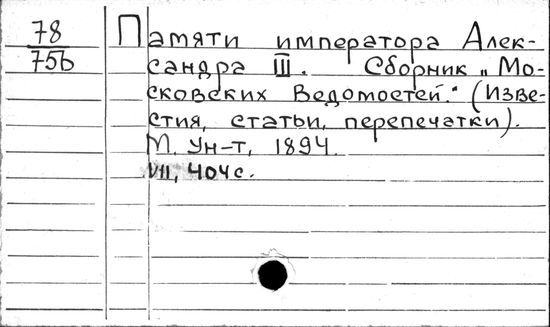 78
75б
Памяти императора Алек-
сандра III. Сборник „Мо-
сковских Ведомостей." (Изве-
стия, статьи, перепечатки).
М. Ун-т, 1894.
VII, 404 с.